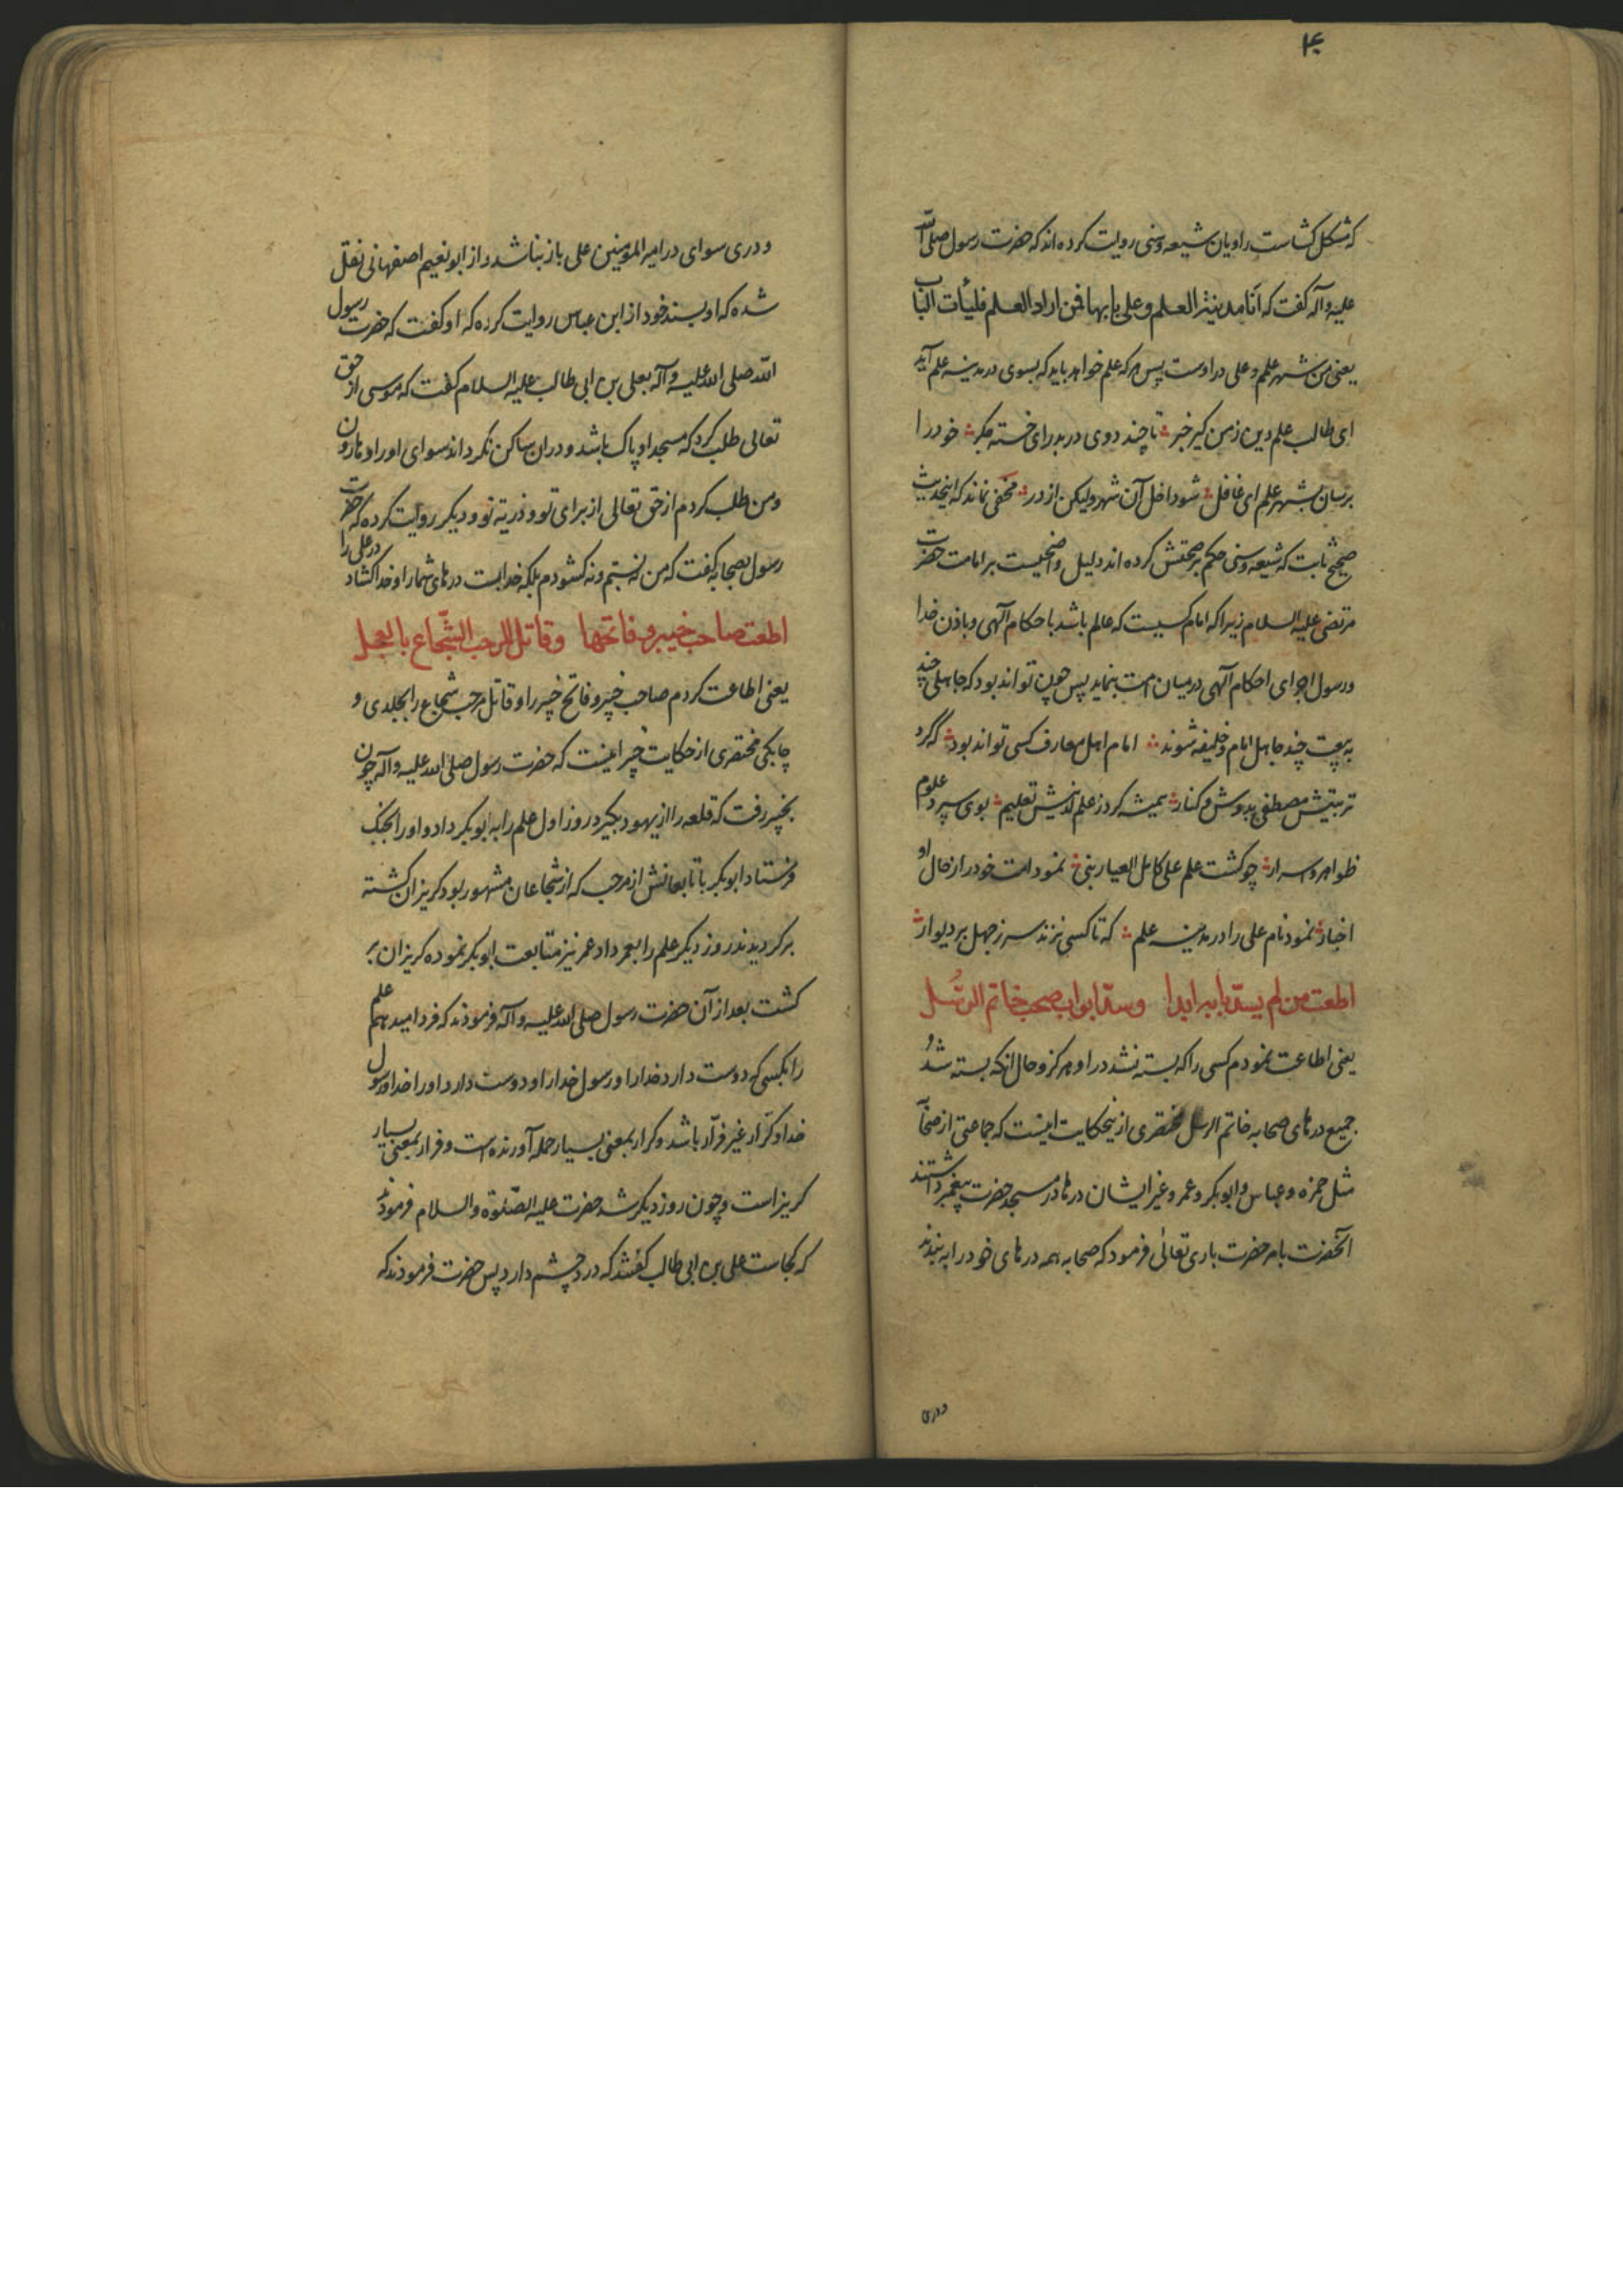 ۴۰
که مشکل کشاست راویان شیعه و سنی روایت کرده اند که حضرت رسول صلی الله
علیه وآله گفت که انا مدینة العلم وعلی بابها فمن اراد العلم فلیأت الباب
یعنی من شهر علمم وعلی در اوست پس هر که علم خواهد باید که بسوی در مدینه علم آید
ای طالب علم دین ز من گیر خبر تا چند دوی در بدر ای خسته جگر خود را
برسان بشهر علم ای غافل شو داخل آن شهر ولیکن از در مخفی نماند که اینحدیث
صحیح ثابت که شیعه و سنی حکم بر صحتش کرده اند دلیل واضحیست بر امامت حضرت
مرتضی علیه السلام زیرا که امام کسیست که عالم باشد باحکام الهی و باذن خدا
ورسول اجرای احکام الهی در میان امت بنماید پس چون تواند بود که جاهلی چند
به بیعت چند جاهل امام و خلیفه شوند امام اهل معارف کسی تواند بود که کرد
تربیتش مصطفی بدوش و کنار همیشه کرد ز علم لدنیش تعلیم بوی سپرد علوم
ظواهر و اسرار چو گشت علم علی کامل العیار نبی نمود امت خود را ز حال او
اخبار نمود نام علی را در مدینه علم که تا کسی نزند سر ز جهل بر دیوار
اطعت من لم یسد بابه ابدا وسد ابواب صحب خاتم الرسل
یعنی اطاعت نمودم کسی را که بسته نشد در او هرگز و حال آنکه بسته شد
جمیع درهای صحابه خاتم الرسل مختصری از ینحکایت اینست که جماعتی از صحابه
مثل حمزه و عباس و ابوبکر و عمر و غیر ایشان درها در مسجد حضرت پیغمبر داشتند
آنحضرت بامر حضرت باری تعالی فرمود که صحابه همه درهای خود را به بندند
ودری
ودری سوای در امیر المومنین علی باز نباشد و از ابونعیم اصفهانی نقل
شده که او بسند خود از ابن عباس روایت کرده که او گفت که حضرت رسول
الله صلی الله علیه وآله بعلی بن ابی طالب علیه السلام گفت که موسی از حق
تعالی طلب کرد که مسجد او پاک باشد و در ان ساکن نگرداند سوای او را و هارون
ومن طلب کردم از حق تعالی از برای تو و ذریه تو و دیگر روایت کرده که حضرت
رسول بصحابه گفت که من نه بستم و نه گشودم بلکه خدا بست درهای شما را و خدا گشاد در علی را
اطعت صاحب خیبر وفاتحها وقاتل المرحب الشجاع بالعجل
یعنی اطاعت کردم صاحب خیبر و فاتح خیبر را و قاتل مرحب شجاع را بجلدی و
چابکی مختصری از حکایت خیبر اینست که حضرت رسول صلی الله علیه وآله چون
بخیبر رفت که قلعه را از یهود بگیرد روز اول علم را به ابوبکر داد و او را بجنگ
فرستاد ابوبکر با تابعانش از مرحب که از شجاعان مشهور بود گریزان گشته
برگردیدند روز دیگر علم را بعمر داد عمر نیز متابعت ابوبکر نموده گریزان بر
گشت بعد از آن حضرت رسول صلی الله علیه وآله فرمودند که فردا میدهم علم
را بکسی که دوست دارد خدا را و رسول خدا را و دوست دارد او را خدا و رسول
خدا و کرار غیر فرار باشد و کرار بمعنی بسیار حمله آورنده است و فرار بمعنی بسیار
گریز است وچون روز دیگر شد حضرت علیه الصلوة والسلام فرمودند
که کجاست علی بن ابی طالب گفتند که درد چشم دارد پس حضرت فرمودند که